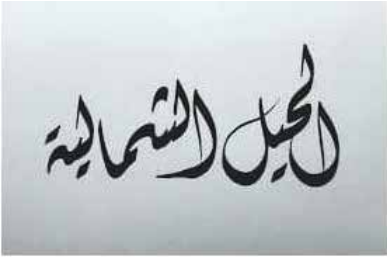 الحيل الشمالية